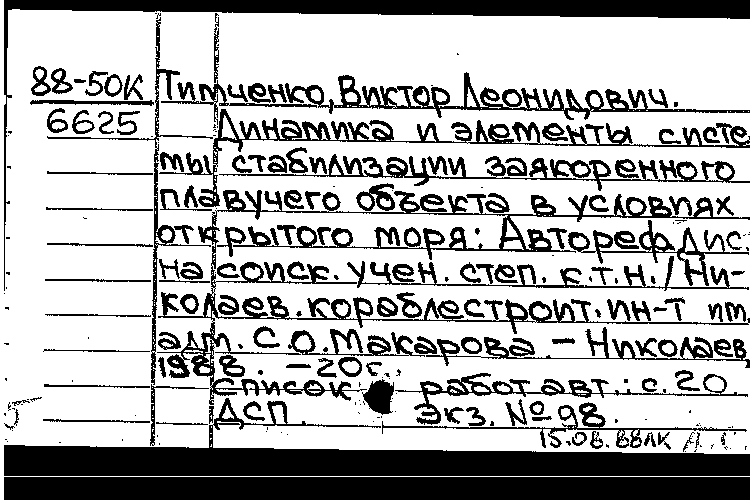 88-50К Тимченко, Виктор Леонидович.
6625 Динамика и элементы систе
мы стабилизации заякоренного
плавучего объекта в условиях
открытого моря: Автореф. Дис.
на соиск. учен. степ. к.т.н./ Ни-
колаев. кораблестроит. ин-т им.
адм. С.О. Макарова. - Николаев,
1988. - 20с.
Список работ авт.: с. 20.
ДСП. Экз. №98.